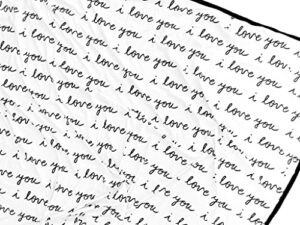 i love you i love you
i love you i love you i love you
love you i love you i love you i love you
you i love you i love you i love you i love you
i love you i love you i love you i love you
i love you i love you i love you i love you
love you i love you i love you i love you
you i love you i love you i love you
i love you i love you i love you i love you
i love you i love you i love you i love you
love you i love you i love you i love you
you i love you i love you i love you
i love you i love you i love you
i love you i love you
love you i love you